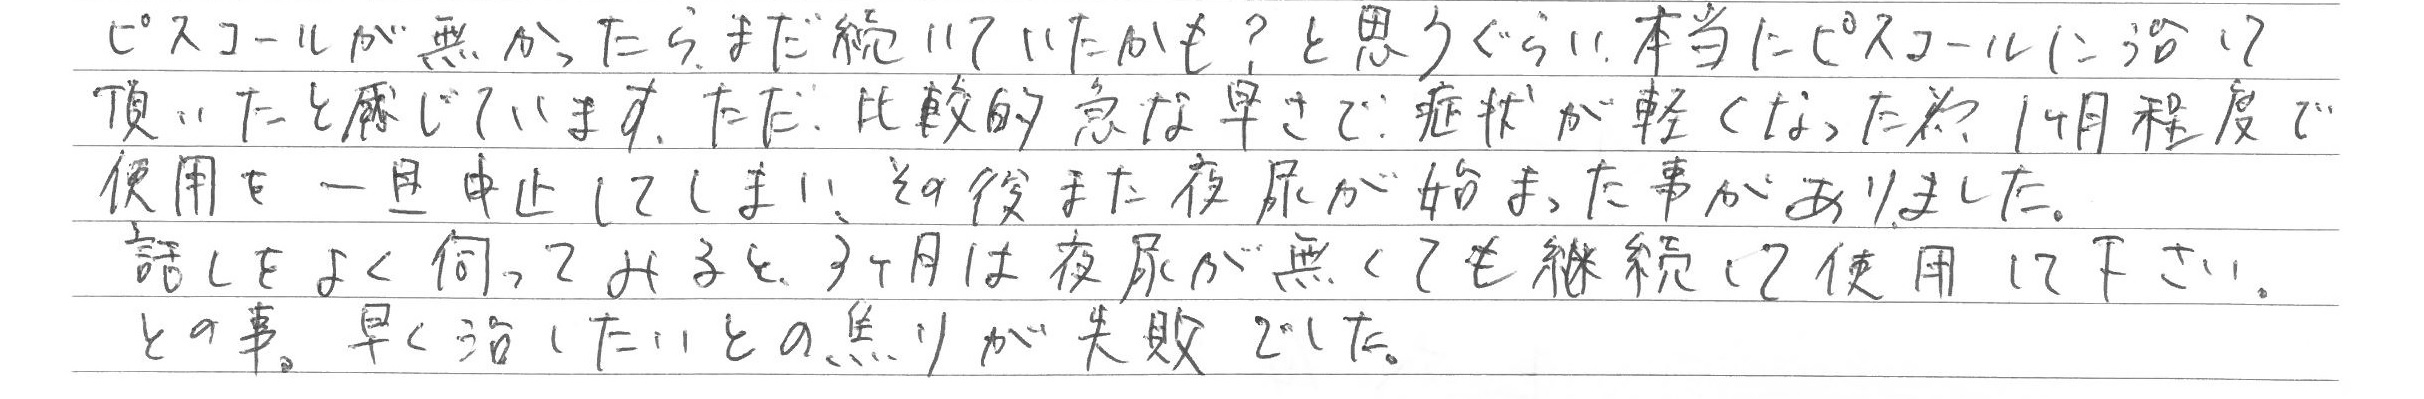 ピスコールが無かったら、まだ続いていたかも？と思うぐらい、本当にピスコールに治して
頂いたと感じています。ただ、比較的急な早さで、症状が軽くなった為、1ヶ月程度で
使用を一旦中止してしまい、その後また夜尿が始まった事がありました。
話しをよく伺ってみると、3ヶ月は夜尿が無くても継続して使用して下さい。
との事。早く治したいとの焦りが失敗でした。